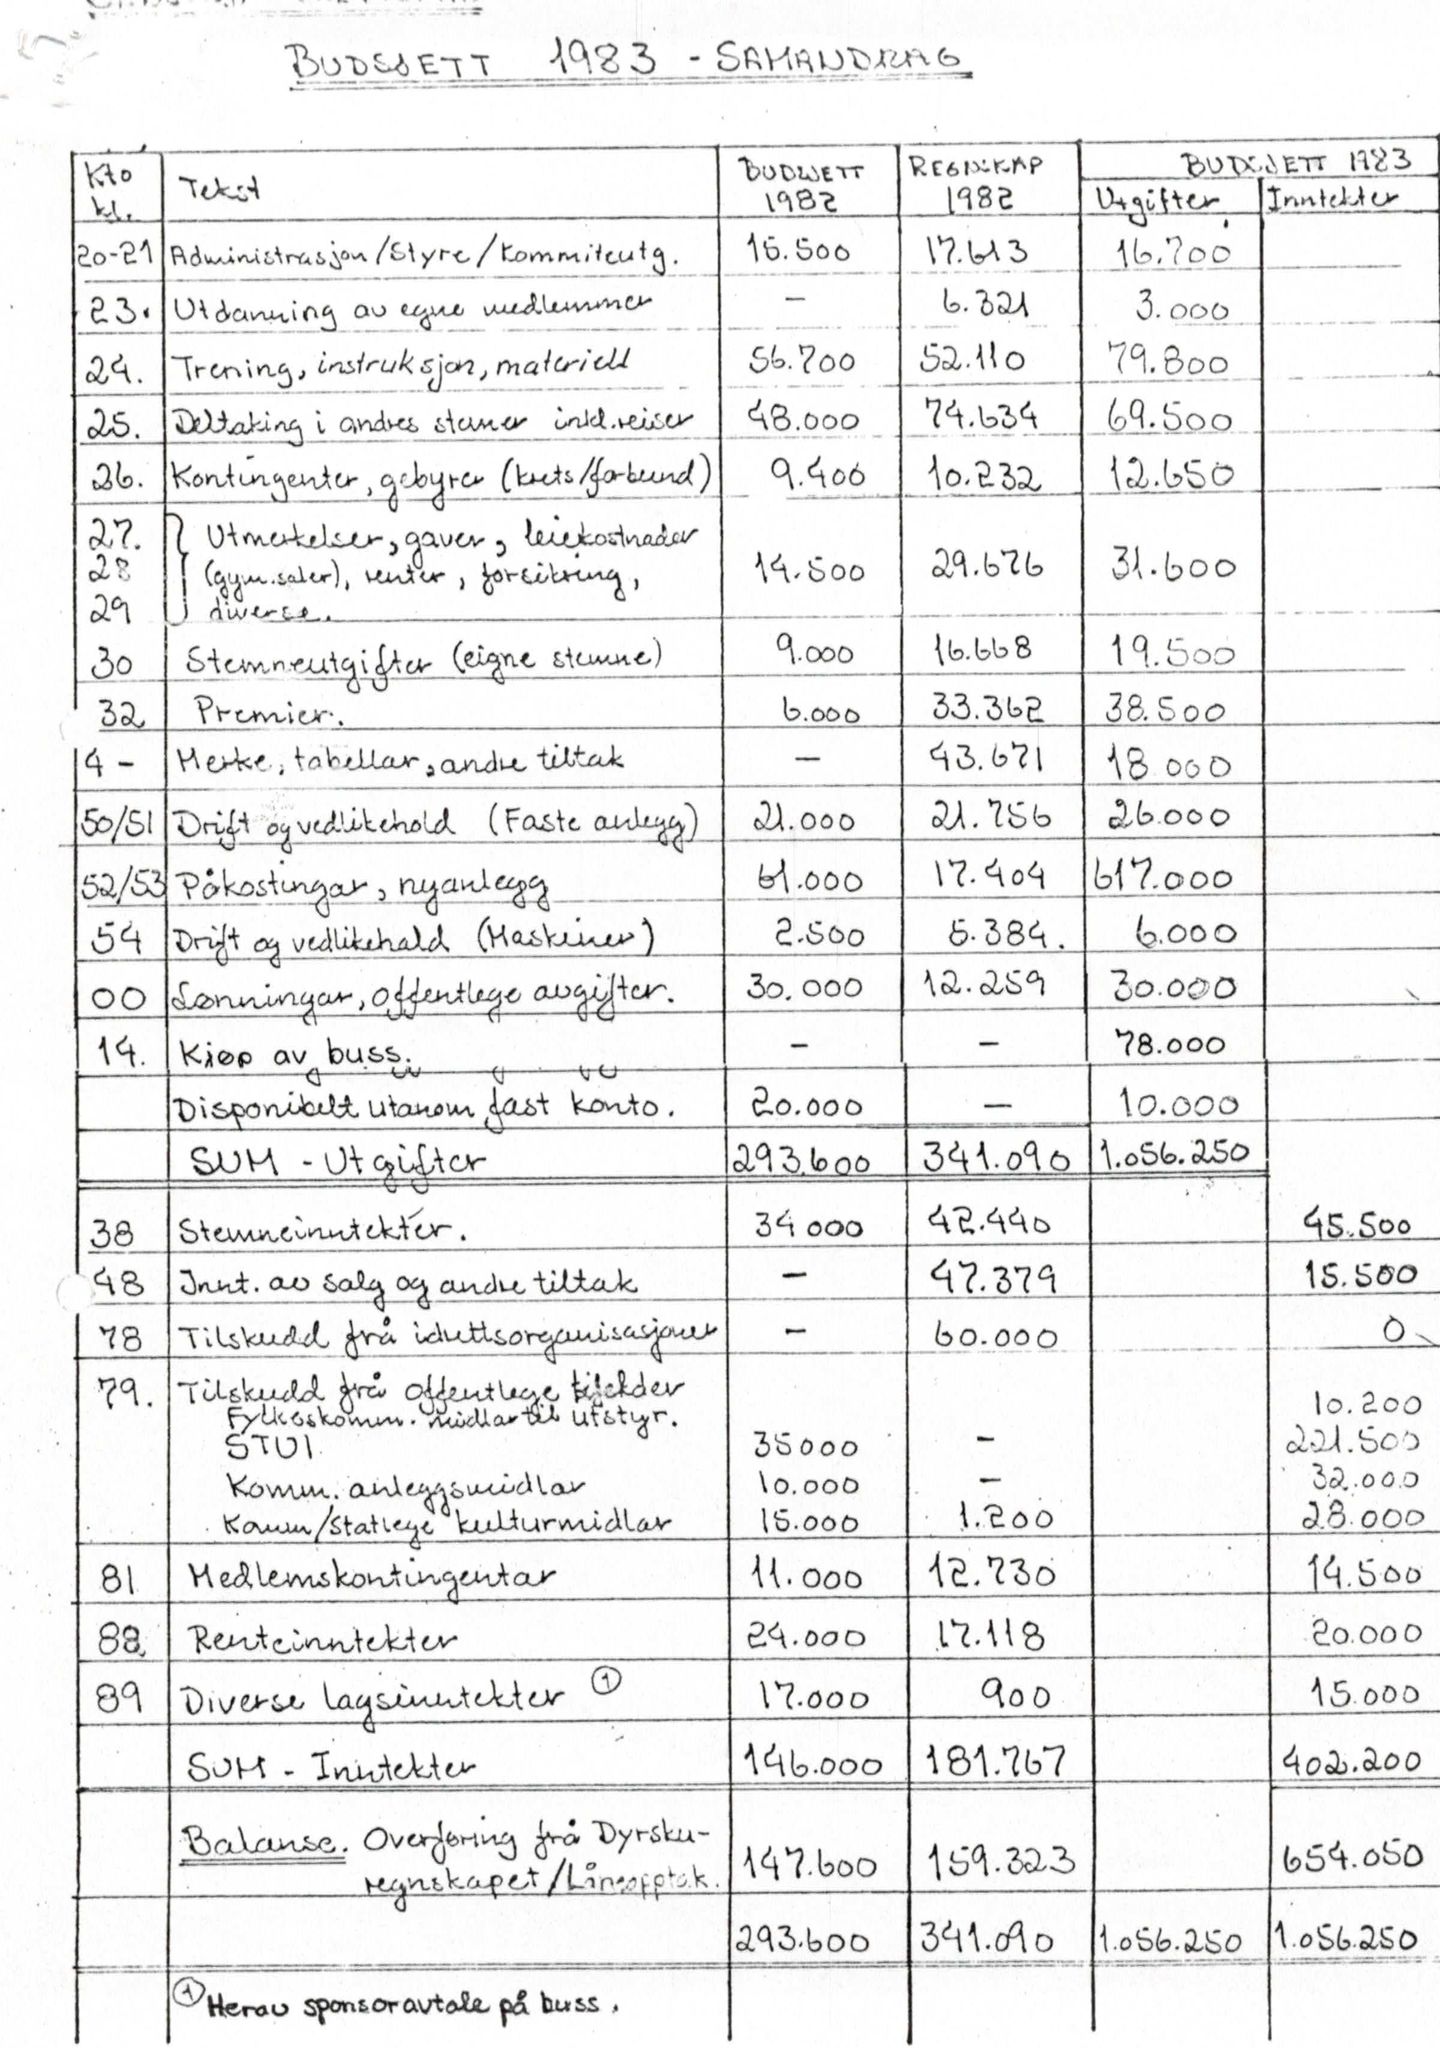 BUDSJETT 1983 - SAMANDRAG
Kto kl. Tekst BUDSJETT 1982 REGNSKAP 1982 BUDSJETT 1983
Utgifter Inntekter
20-21 Administrasjon/Styre/Kommiteutg. 15.500 17.613 16.700
23. Utdanning av egne medlemmer - 6.321 3.000
24. Trening, instruksjon, materiell 56.700 52.110 79.800
25. Deltaking i andres stevner inkl.reiser 48.000 74.634 69.500
26. Kontingenter, gebyrer (krets/forbund) 9.400 10.232 12.650
27. Utmerkelser, gaver, leiekostnader
28 (gym.saler), renter, forsikring, 14.500 29.676 31.600
29 diverse.
30 Stemneutgifter (eigne stemne) 9.000 16.668 19.500
32 Premier. 6.000 33.362 38.500
4 - Merke, tabellar, andre tiltak - 43.671 18.000
50/51 Drift og vedlikehold (Faste anlegg) 21.000 21.756 26.000
52/53 Påkostingar, nyanlegg 61.000 17.404 617.000
54 Drift og vedlikehald (Maskiner) 2.500 5.384. 6.000
00 Lønningar, offentlege avgifter. 30.000 12.259 30.000
14. Kjøp av buss. - - 78.000
Disponibelt utanom fast konto. 20.000 - 10.000
SUM - Utgifter 293.600 341.090 1.056.250
38 Stemneinntekter. 34000 42.440 45.500
48 Innt. av salg og andre tiltak - 47.379 15.500
78 Tilskudd frå idrettsorganisasjoner - 60.000 0
79. Tilskudd frå offentlege
Fylkeskomm. midlar til utstyr. 10.200
STUI 35000 - 221.500
Komm. anleggsmidlar 10.000 - 32.000
Komm/Statlege kulturmidlar 15.000 1.200 28.000
81 Medlemskontingentar 11.000 12.730 14.500
88 Renteinntekter 24.000 17.118 20.000
89 Diverse lagsinntekter ① 17.000 900 15.000
SUM - Inntekter 146.000 181.767 402.200
Balanse. Overføring frå Dyrsku-
regnskapet/Låneopptak. 147.600 159.323 654.050
293.600 341.090 1.056.250 1.056.250
① Herav sponsoravtale på buss.